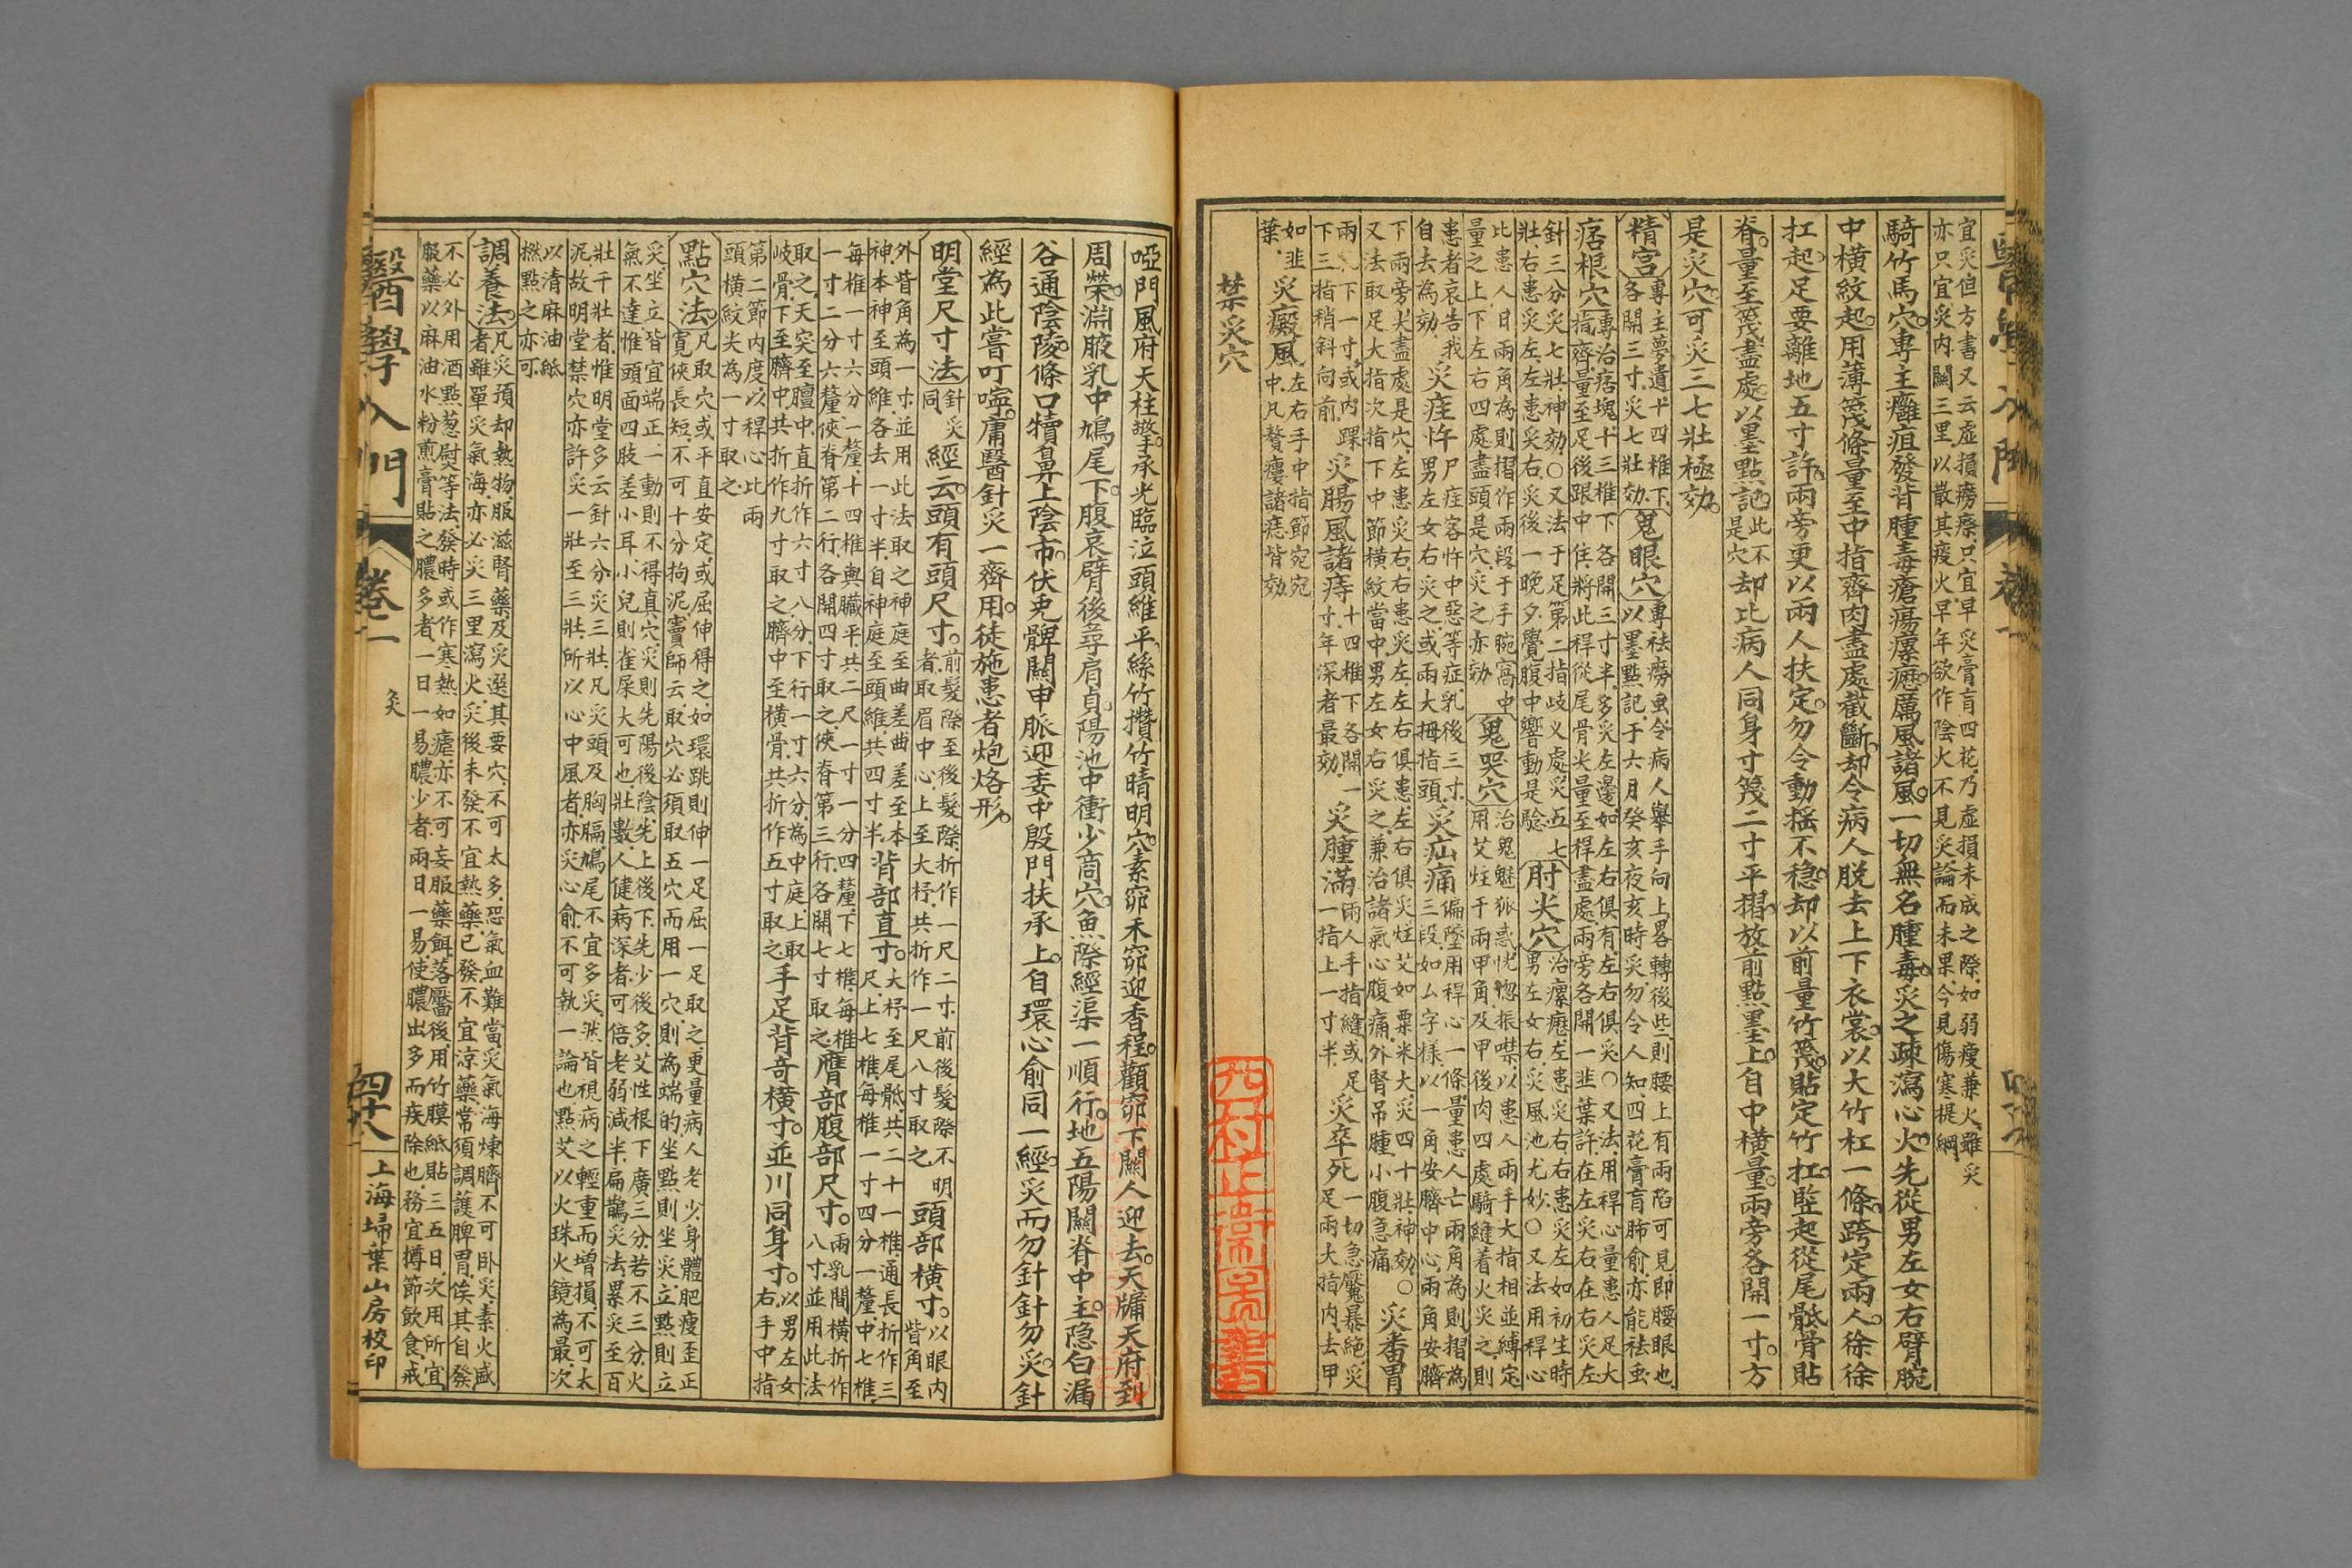 宜灸但方書又云虛損癆瘵只宜早灸膏肓四花乃虛損未成之際如弱瘦兼火雖灸
亦只宜灸內關三里以散其痰火早年欲作陰火不見灸論而未果今見傷寒提綱
騎竹馬穴專主癰疽發背腫毒瘡瘍瘰癧厲風諸風一切無名腫毒灸之疎瀉心火先從男左女右臂腕
中橫紋起用薄篾條量至中指齊肉盡處截斷却令病人脫去上下衣裳以大竹杠一條跨定兩人徐徐
扛起足要離地五寸許兩旁更以兩人扶定勿令動搖不穩却以前量竹篾貼定竹杠竪起從尾骶骨貼
脊量至篾盡處以墨點記此不是穴却比病人同身寸篾二寸平摺放前點墨上自中橫量兩旁各開一寸方
是灸穴可灸三七壯極効
精宮專主夢遺十四椎下各開三寸灸七壯効鬼眼穴專祛癆虫令病人舉手向上畧轉後些則腰上有兩陷可見即腰眼也以墨點記于六月癸亥夜亥時灸勿令人知四花膏肓肺俞亦能祛虫
痞根穴專治痞塊十三椎下各開三寸半多灸左邊如左右俱有左右俱灸○又法用稈心量患人足大指齊量至足後跟中住將此稈從尾骨尖量至稈盡處兩旁各開一韭葉許在左灸右在右灸左
針三分灸七壯神効○又法于足第二指歧义處灸五七壯右患灸左左患灸右灸後一晚夕覺腹中響動是驗肘尖穴治瘰癧左患灸右右患灸左如初生時男左女右灸風池尤妙○又法用稈心
比患人日兩角為則摺作兩段于手腕窩中量之上下左右四處盡頭是穴灸之亦効鬼哭穴治鬼魅狐惑恍惚振噤以患人兩手大指相並縛定用艾炷于兩甲角及甲後肉四處騎縫着火灸之則
患者哀告我自去為効灸疰忤尸疰客忤中惡等症乳後三寸男左女右灸之或兩大拇指頭灸疝痛偏墜用稈心一條量患人亡兩角為則摺為三段如厶字樣以一角安臍中心兩角安臍
下兩旁尖盡處是穴左患灸右右患灸左左右俱患左右俱灸炷艾如粟米大灸四十壯神効○
又法取足大指次指下中節橫紋當中男左女右灸之兼治諸氣心腹痛外腎吊腫小腹急痛灸番胃
兩乳下一寸或內踝下三指稍斜向前灸腸風諸痔十四椎下各開一寸年深者最効灸腫滿兩人手指縫或足一指上一寸半灸卒死一切急魘暴絶灸足兩大指內去甲
如韭葉灸癜風左右手中指節宛宛中凡贅癭諸痣皆効
禁灸穴
啞門風府天柱擎承光臨泣頭維平絲竹攢竹晴明穴素窌禾窌迎香程顴窌下關人迎去天牖天府到
周榮淵腋乳中鳩尾下腹哀臂後尋肩貞陽池中衝少商穴魚際經渠一順行地五陽關脊中主隐白漏
谷通陰陵條口犢鼻上陰市伏兎髀關申脈迎委中殷門扶承上自環心俞同一經灸而勿針針勿灸針
經為此嘗叮嚀庸醫針灸一齊用徒施患者炮烙形
明堂尺寸法針灸同經云頭有頭尺寸前髮際至後髮際折作一尺二寸前後髮際不明者取眉中心上至大杼共折作一尺八寸取之頭部橫寸以眼內眥角至
外眥角為一寸並用此法取之神庭至曲差曲差至本神本神至頭維各去一寸半自神庭至頭維共四寸半背部直寸大杼至尾骶共二十一椎通長折作三尺上七椎每椎一寸四分一釐中七椎
每椎一寸六分一釐十四椎與臟平共二尺一寸一分四釐下七椎每椎一寸二分六釐俠脊第二行各開四寸取之俠脊第三行各開七寸取之膺部腹部尺寸兩乳間橫折作八寸並用此法
取之天突至膻中直折作六寸八分下行一寸六分為中庭上取岐骨下至臍中共折作九寸取之臍中至橫骨共折作五寸取之手足背奇橫寸並川同身寸以男左女右手中指
第二節內度以稈心比兩頭橫紋尖為一寸取之
點穴法凡取穴或平直安定或屈伸得之如環跳則伸一足屈一足取之更量病人老少身體肥瘦歪正寛俠長短不可十分拘泥竇師云取穴必須取五穴而用一穴則為端的坐點則坐灸立點則立
灸坐立皆宜端正一動則不得真穴灸則先陽後陰先上後下先少後多艾性根下廣三分若不三分火
氣不達惟頭面四肢差小耳小兒則雀屎大可也壯數人健病深者可倍老弱減半扁鵲灸法累灸至百
壯千壯者惟明堂多云針六分灸三壯凡灸頭及胸膈鳩尾不宜多灸然皆視病之輕重而增損不可太
泥故明堂禁穴亦許灸一壯至三壯所以心中風者亦灸心俞不可執一論也點艾以火珠火鏡為最次
以清麻油紙撚點之亦可
調養法凡灸預却熱物服滋腎藥及灸選其要穴不可太多恐氣血難當灸氣海煉臍不可卧灸素火盛者雖單灸氣海亦必灸三里瀉火灸後未發不宜熱藥已發不宜涼藥常須調護脾胃俟其自發
不必外用酒點葱熨等法發時或作寒熱如瘧亦不可妄服藥餌落靨後用竹膜紙貼三五日次用所宜
服藥以麻油水粉煎膏貼之膿多者一日一易膿少者兩日一易使膿出多而疾除也務宜撙節飲食戒
醫學入門 卷二 灸 四十八 上海埽葉山房校印